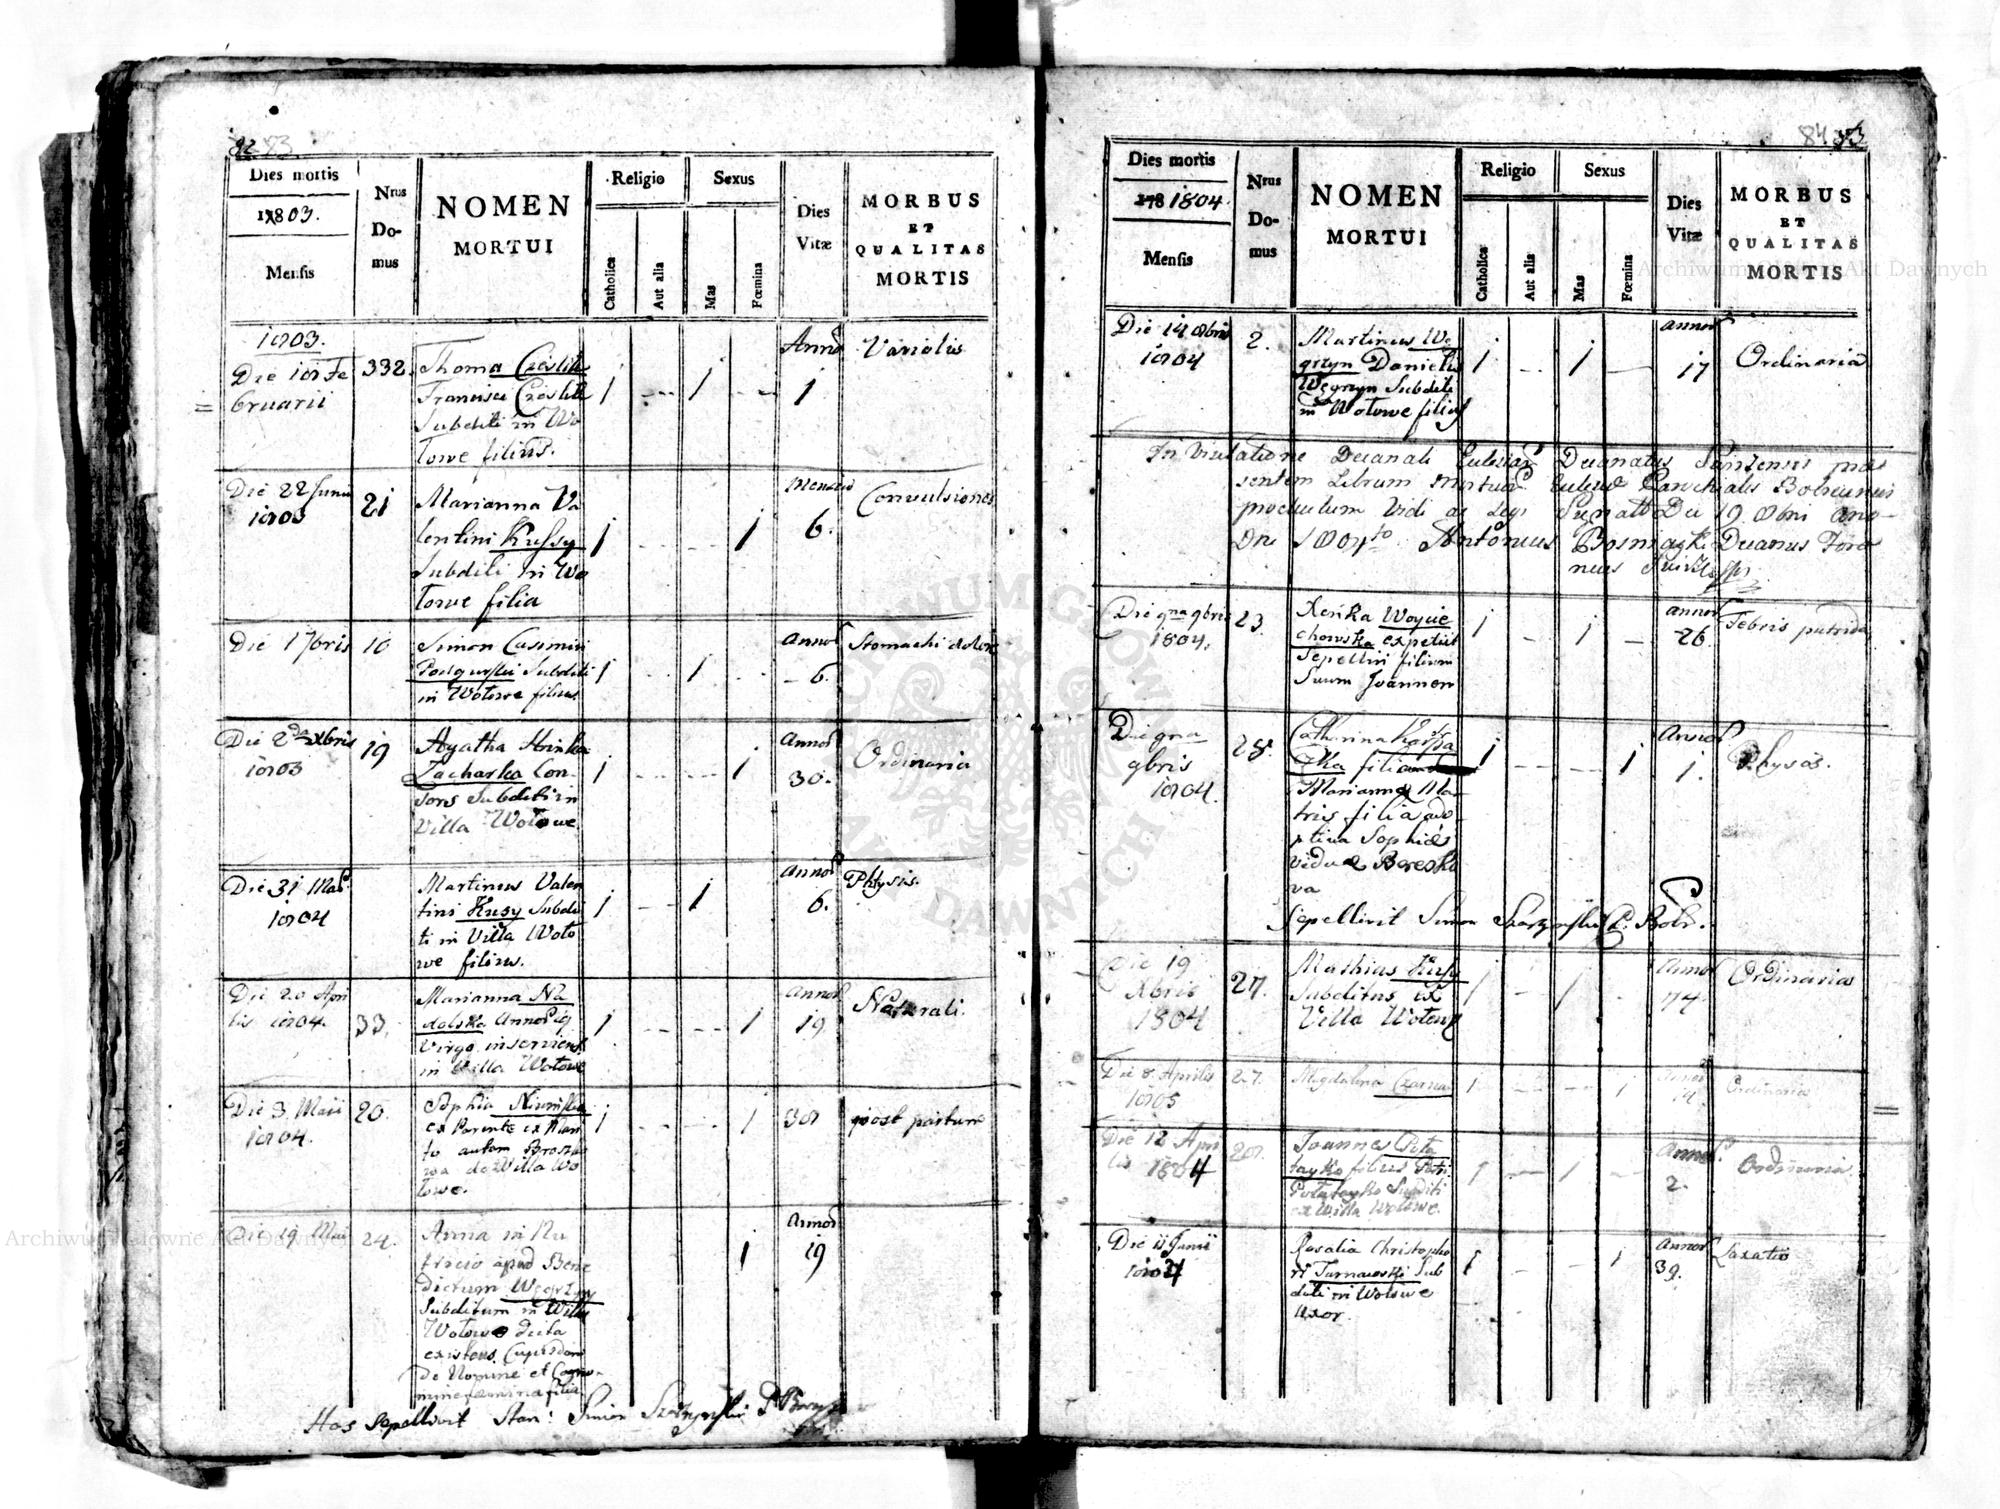 82 83
Dies mortis
1803.
Mensis
Nrus
Do-
mus
NOMEN
MORTUI
Religio
Catholica
Aut alia
Sexus
Mas
Fœmina
Dies
Vitæ
MORBUS
ET
QUALITAS
MORTIS
1803.
Die 18 Fe
bruarii
332.
Thoma
Francisci
Subditi in Wo
towe filius.
1
1
Annor
1
Variolis
Die 22 Junii
1803
21
Marianna Va
lentini Kussy
Subditi in Wo
towe filia
1
1
6.
Convulsiones
Die 1 7bris
10
Simon Casimiri
Subditi
in Wotowe filius
1
1
Annor
6.
Stomachi dolore
Die 2da Xbris
1803
19
Agatha Hrinka
Zacharka Con-
sors Subditi in
Villa Wotowe
1
1
Annor
30.
Ordinaria
Die 31 Mar
1804
Martinus Valen
tini Kusy Subdi
ti in Villa Woto
we filius.
1
1
Annor
6.
Phtysis.
Die 20 Apri
lis 1804.
33.
Marianna Na
dolska Annor 19
Virgo inserviens
in Villa Wotowe
1
1
Annor
19
Naturali.
Die 3 Maii
1804.
20.
Sophia
ex Parente ex Mari
to autem
wa de Villa Wo
towe.
1
1
38
post partum
Die 19 Maii
24.
Anna in Nu
tricio apud Bene
dictum Wegrzyn
Subditum in Villa
Wotowe dicta
existens Cujusdam
De Nomine et Cogno-
mine femina filia
1
Annor
19
Hos sepellivit Simon
84 83
Dies mortis
178 1804.
Mensis
Nrus
Do-
mus
NOMEN
MORTUI
Religio
Catholica
Aut alia
Sexus
Mas
Fœmina
Dies
Vitæ
MORBUS
ET
QUALITAS
MORTIS
Die 14 8bris
1804
2.
Martinus We
grzyn Danielis
Wegrzyn Subditi
in Wotowe filius
1
1
annor
17
Ordinaria
In Visitatione Decanali Ecclesiar Decanatus prae
sentem Librum Mortuor Ecclesiae Parochialis
productum Vidi ac Legi Die 19 8bri Ano
Dni 1804to Antonius Decanus Fora
neus
Die 9na 9bris
1804.
23.
Xenka Woycie
chowska expetiit
Sepelliri filium
Suum Joannem
1
1
annor
26.
Febris putrida
Die 9na
9bris
1804.
28.
Catharina
filia
Marianna Ma-
tris filia ado-
ptiva Sophiae
viduae
va
Sepellivit Simon
1
1
Annor
1.
Physis.
Die 19
Xbris
1804
27.
Mathias Kusy
Subditus ex
Villa Wotowy
1
1
Annor
74
Ordinaria
Die 8 Aprilis
1805
27.
Magdalena Czarna
1
1
Annor
Ordinaria
Die 12 Apri
lis 1804
20.
Joannes Pota
tayko filius Petri
Potatayko Subditi
ex Villa Wotowe.
1
1
Annor
2.
Ordinaria
Die 11 Junii
1804
Rosalia Christopho
ri Tarnawski Sub
diti in Wotowe
Uxor.
1
1
Annor
39.
Laxatio
Archiwum Główne Akt Dawnych
ARCHIWUM GŁÓWNE AKT DAWNYCH
Archiwum Główne Akt Dawnych